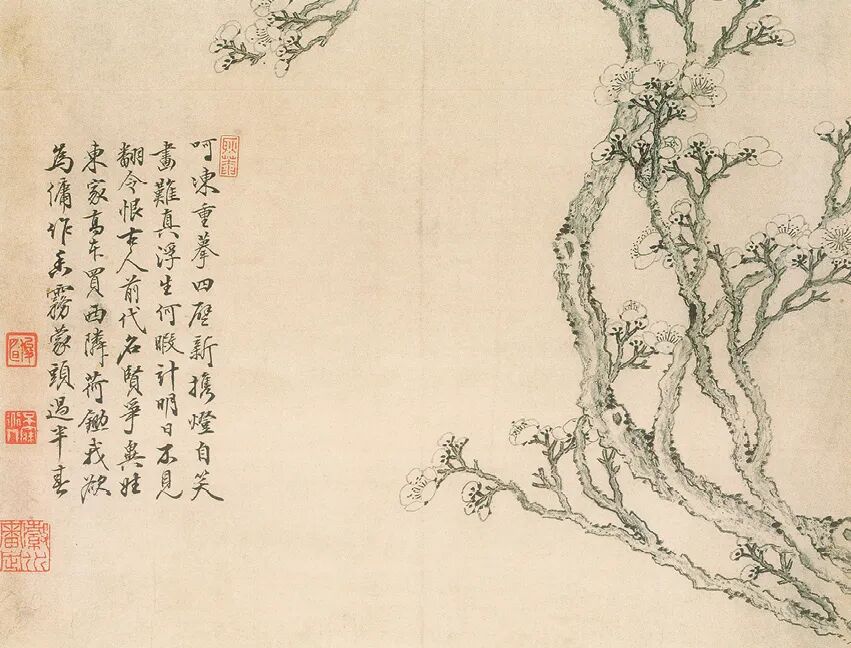 呵凍重摹四壁新攜燈自笑
畫難真浮生何暇計明日不見
翻令恨古人前代名賢爭
東家高車買西隣荷鋤我欲
為傭作香霧蒙頭過半春